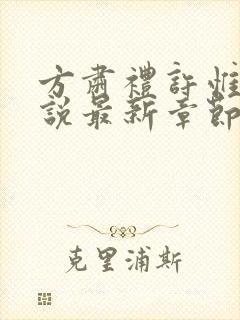 方肅禮許惟
說最新章節
克里浦斯